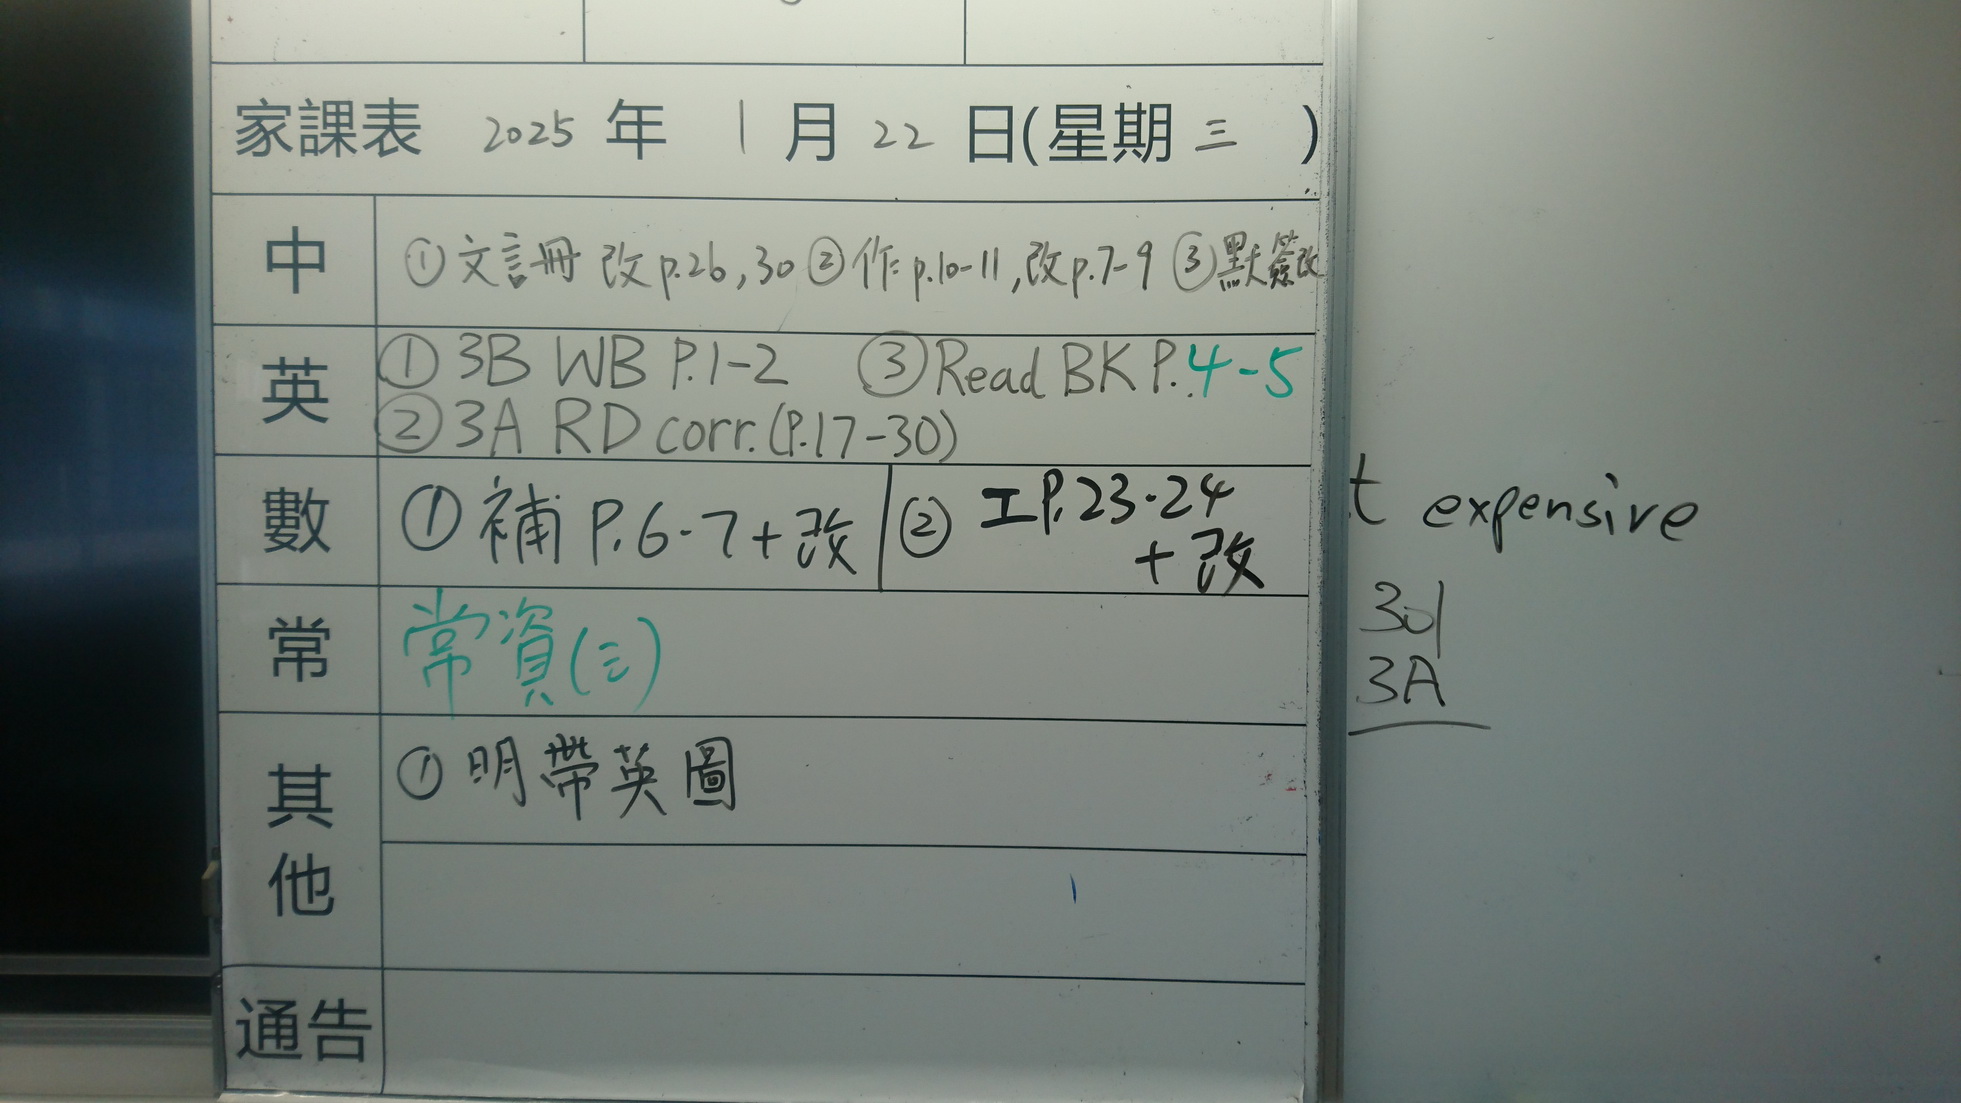 家課表 2025 年 1 月 22 日(星期 三 )
中 ① 文言冊 改 p.26,30 ② 作 p.10-11,改p.7-9 ③ 默簽改
英 ① 3B WB P.1-2 ③ Read BK P.4-5
② 3A RD corr.(P.17-30)
數 ① 補 P.6-7+改 ② 工P.23-24
+改
常 常資(三)
其他 ① 明帶英圖
通告
t expensive
3A